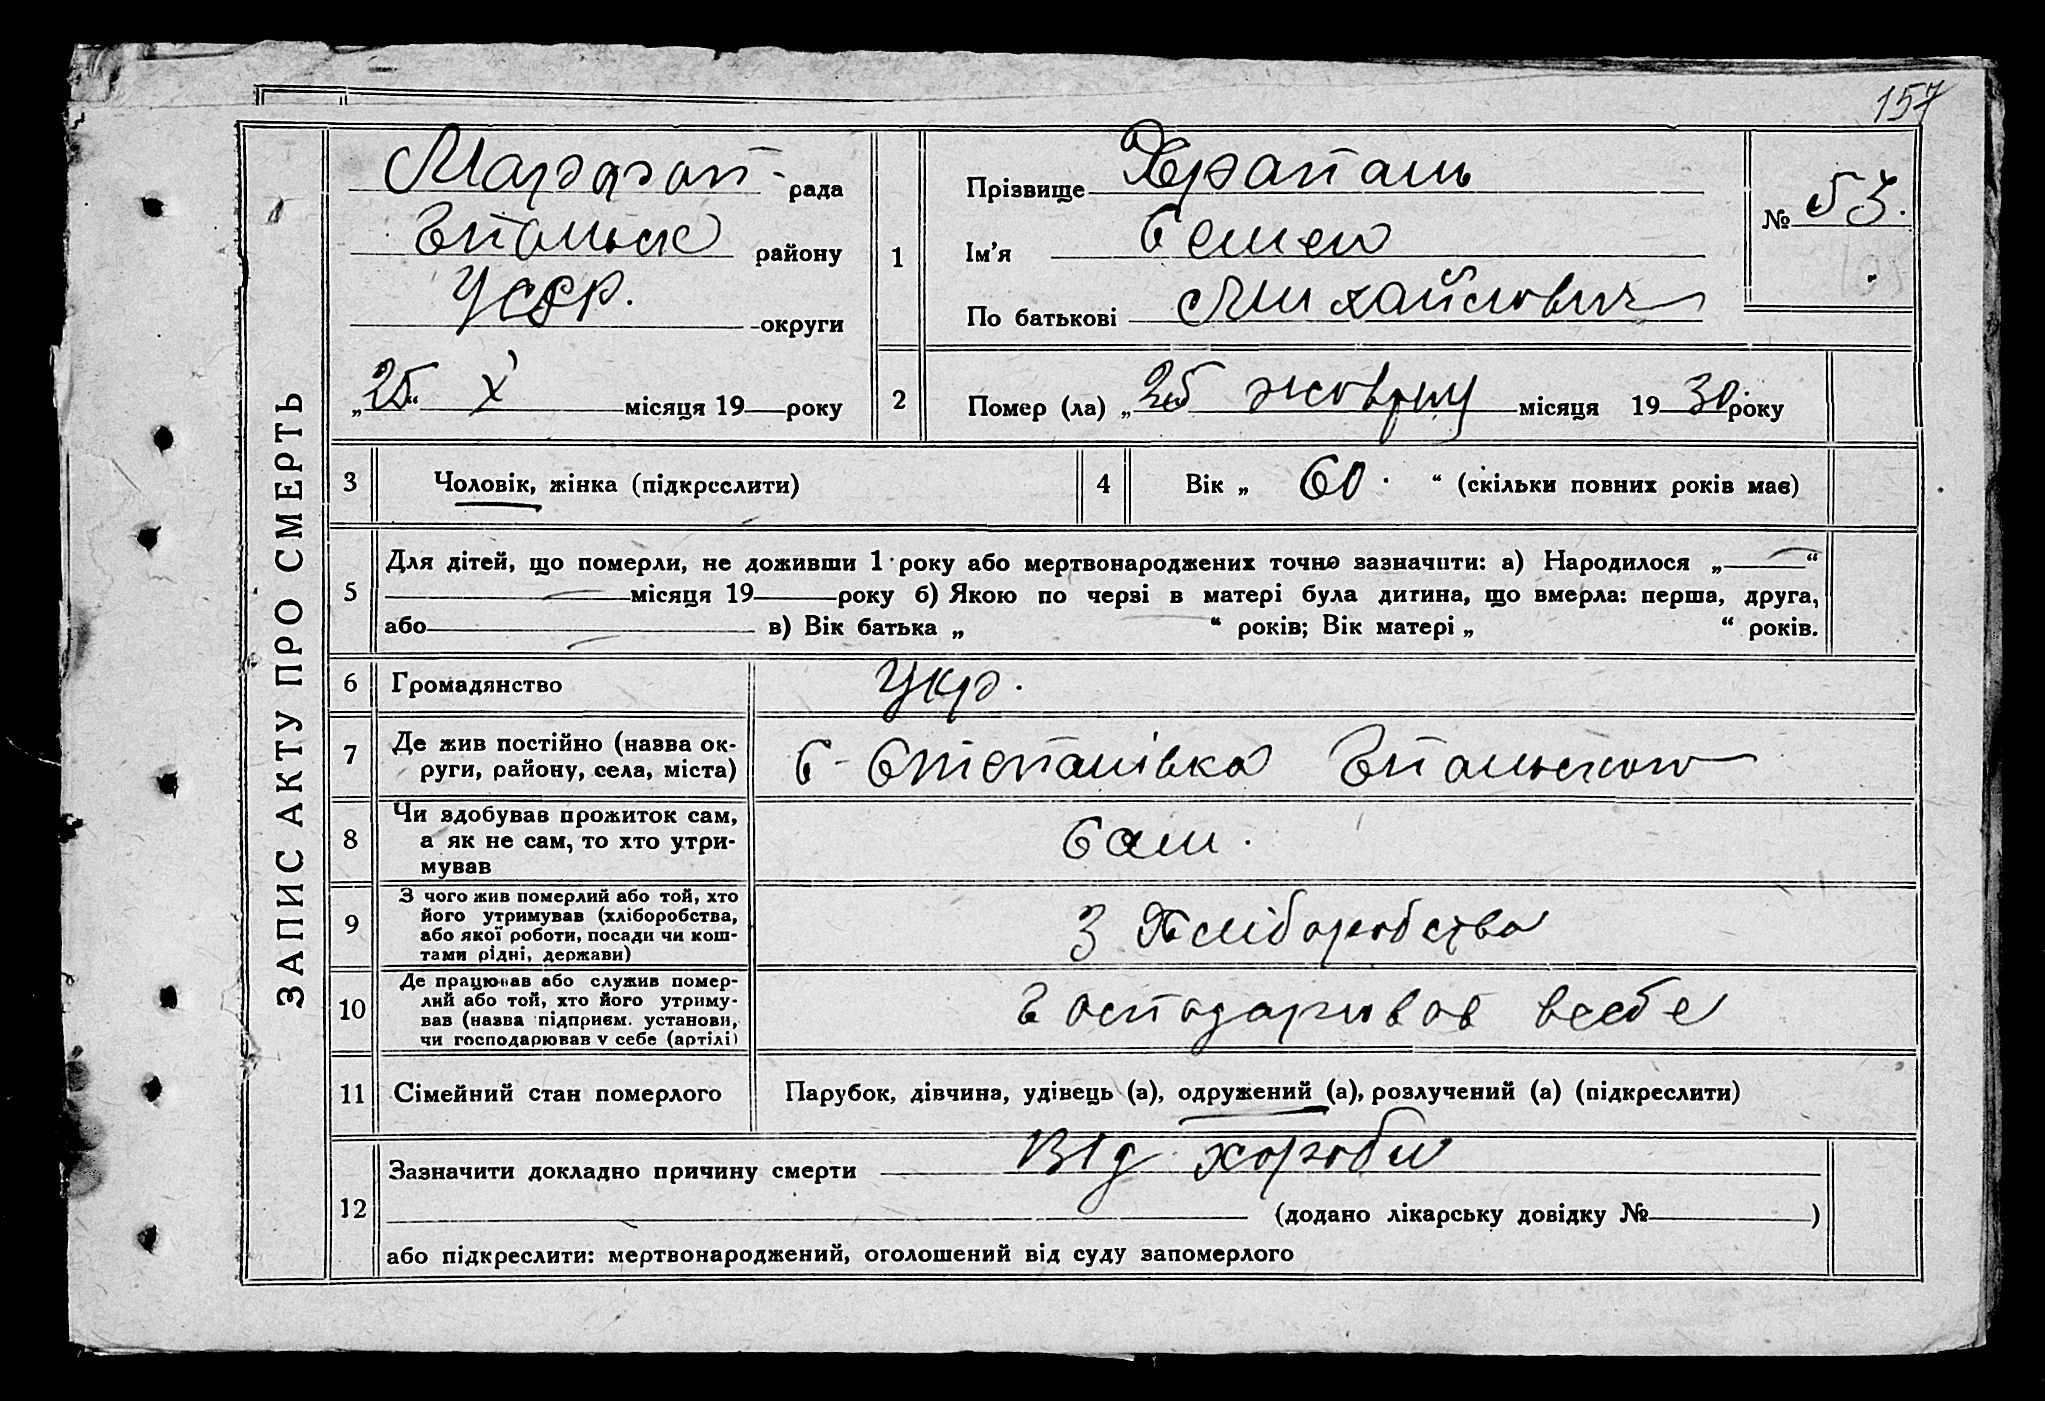 157
ЗАПИС АКТУ ПРО СМЕРТЬ
рада
району
УСРР. -округи
„25“ X місяця 19 року
1
Прізвище Храпаль
Ім'я Семен
По батькові Михайлович
№ 53.
2
Помер (ла) „25 жовтня місяця 1930 року
3
Чоловік, жінка (підкреслити)
4
Вік „ 60. “ (скільки повних років має)
5
Для дітей, що померли, не доживши 1 року або мертвонароджених точно зазначити: а) Народилося „ “
місяця 19 року б) Якою по черзі в матері була дитина, що вмерла: перша, друга,
або в) Вік батька „ “ років; Вік матері „ “ років.
6
Громадянство
Укр.
7
Де жив постійно (назва ок-
руги, району, села, міста)
С-Степанівка
8
Чи здобував прожиток сам,
а як не сам, то хто утри-
мував
Сам.
9
З чого жив померлий або той, хто
його утримував (хліборобства,
або якої роботи, посади чи кош-
тами рідні, держави)
З Хліборобства
10
Де працював або служив помер-
лий або той, хто його утриму-
вав (назва підприєм. установи,
чи господарював у себе (артілі)
Господарював всебе
11
Сімейний стан померлого
Парубок, дівчина, удівець (а), одружений (а), розлучений (а) (підкреслити)
12
Зазначити докладно причину смерти Від хороби
(додано лікарську довідку № )
або підкреслити: мертвонароджений, оголошений від суду запомерлого